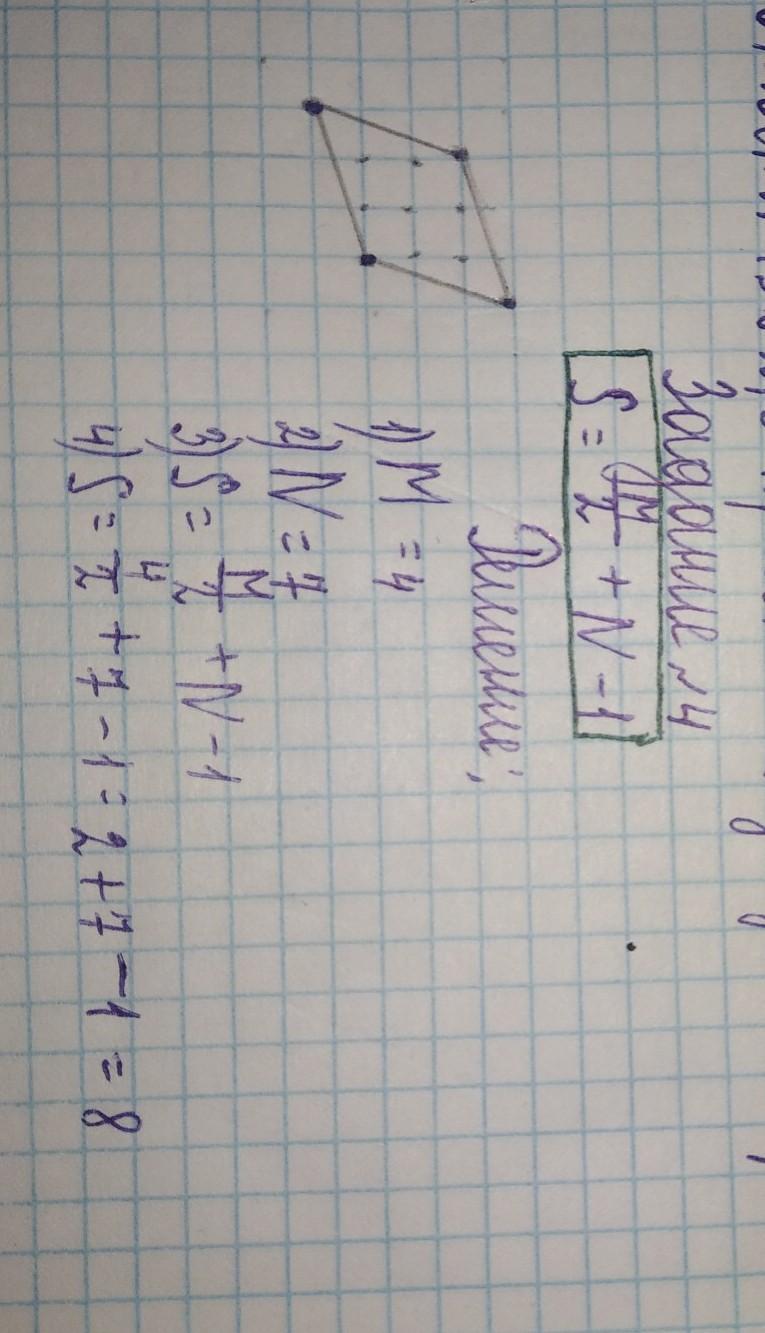 Задание №4
S = М/2 + N - 1
Решение:
1) М = 4
2) N = 7
3) S = М/2 + N - 1
4) S = 4/2 + 7 - 1 = 2 + 7 - 1 = 8